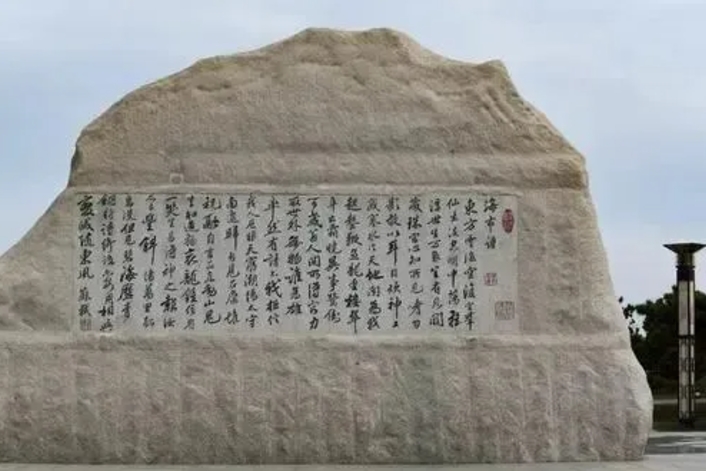 海市诗
東方雲海空復空群
仙出没空明中蕩摇
浮世生万象豈有貝闕
藏珠宫心知所見皆幻
影敢以耳目煩神工
歲寒水冷天地閉為我
起蟄鞭魚龍重樓翠
阜出霜曉異事驚倒
百歲翁人間所得容力
取世外無物誰為雄
率然有請不我拒信
我人厄非天窮潮陽太守
南遷歸喜見石廪堆
祝融自言正直動山鬼
豈知造物哀龍鍾信眉
一笑豈易得神之報汝
亦已豐斜陽萬里孤
鳥没但見碧海磨青
銅新詩綺語亦安用相與
變滅隨東風 蘇軾